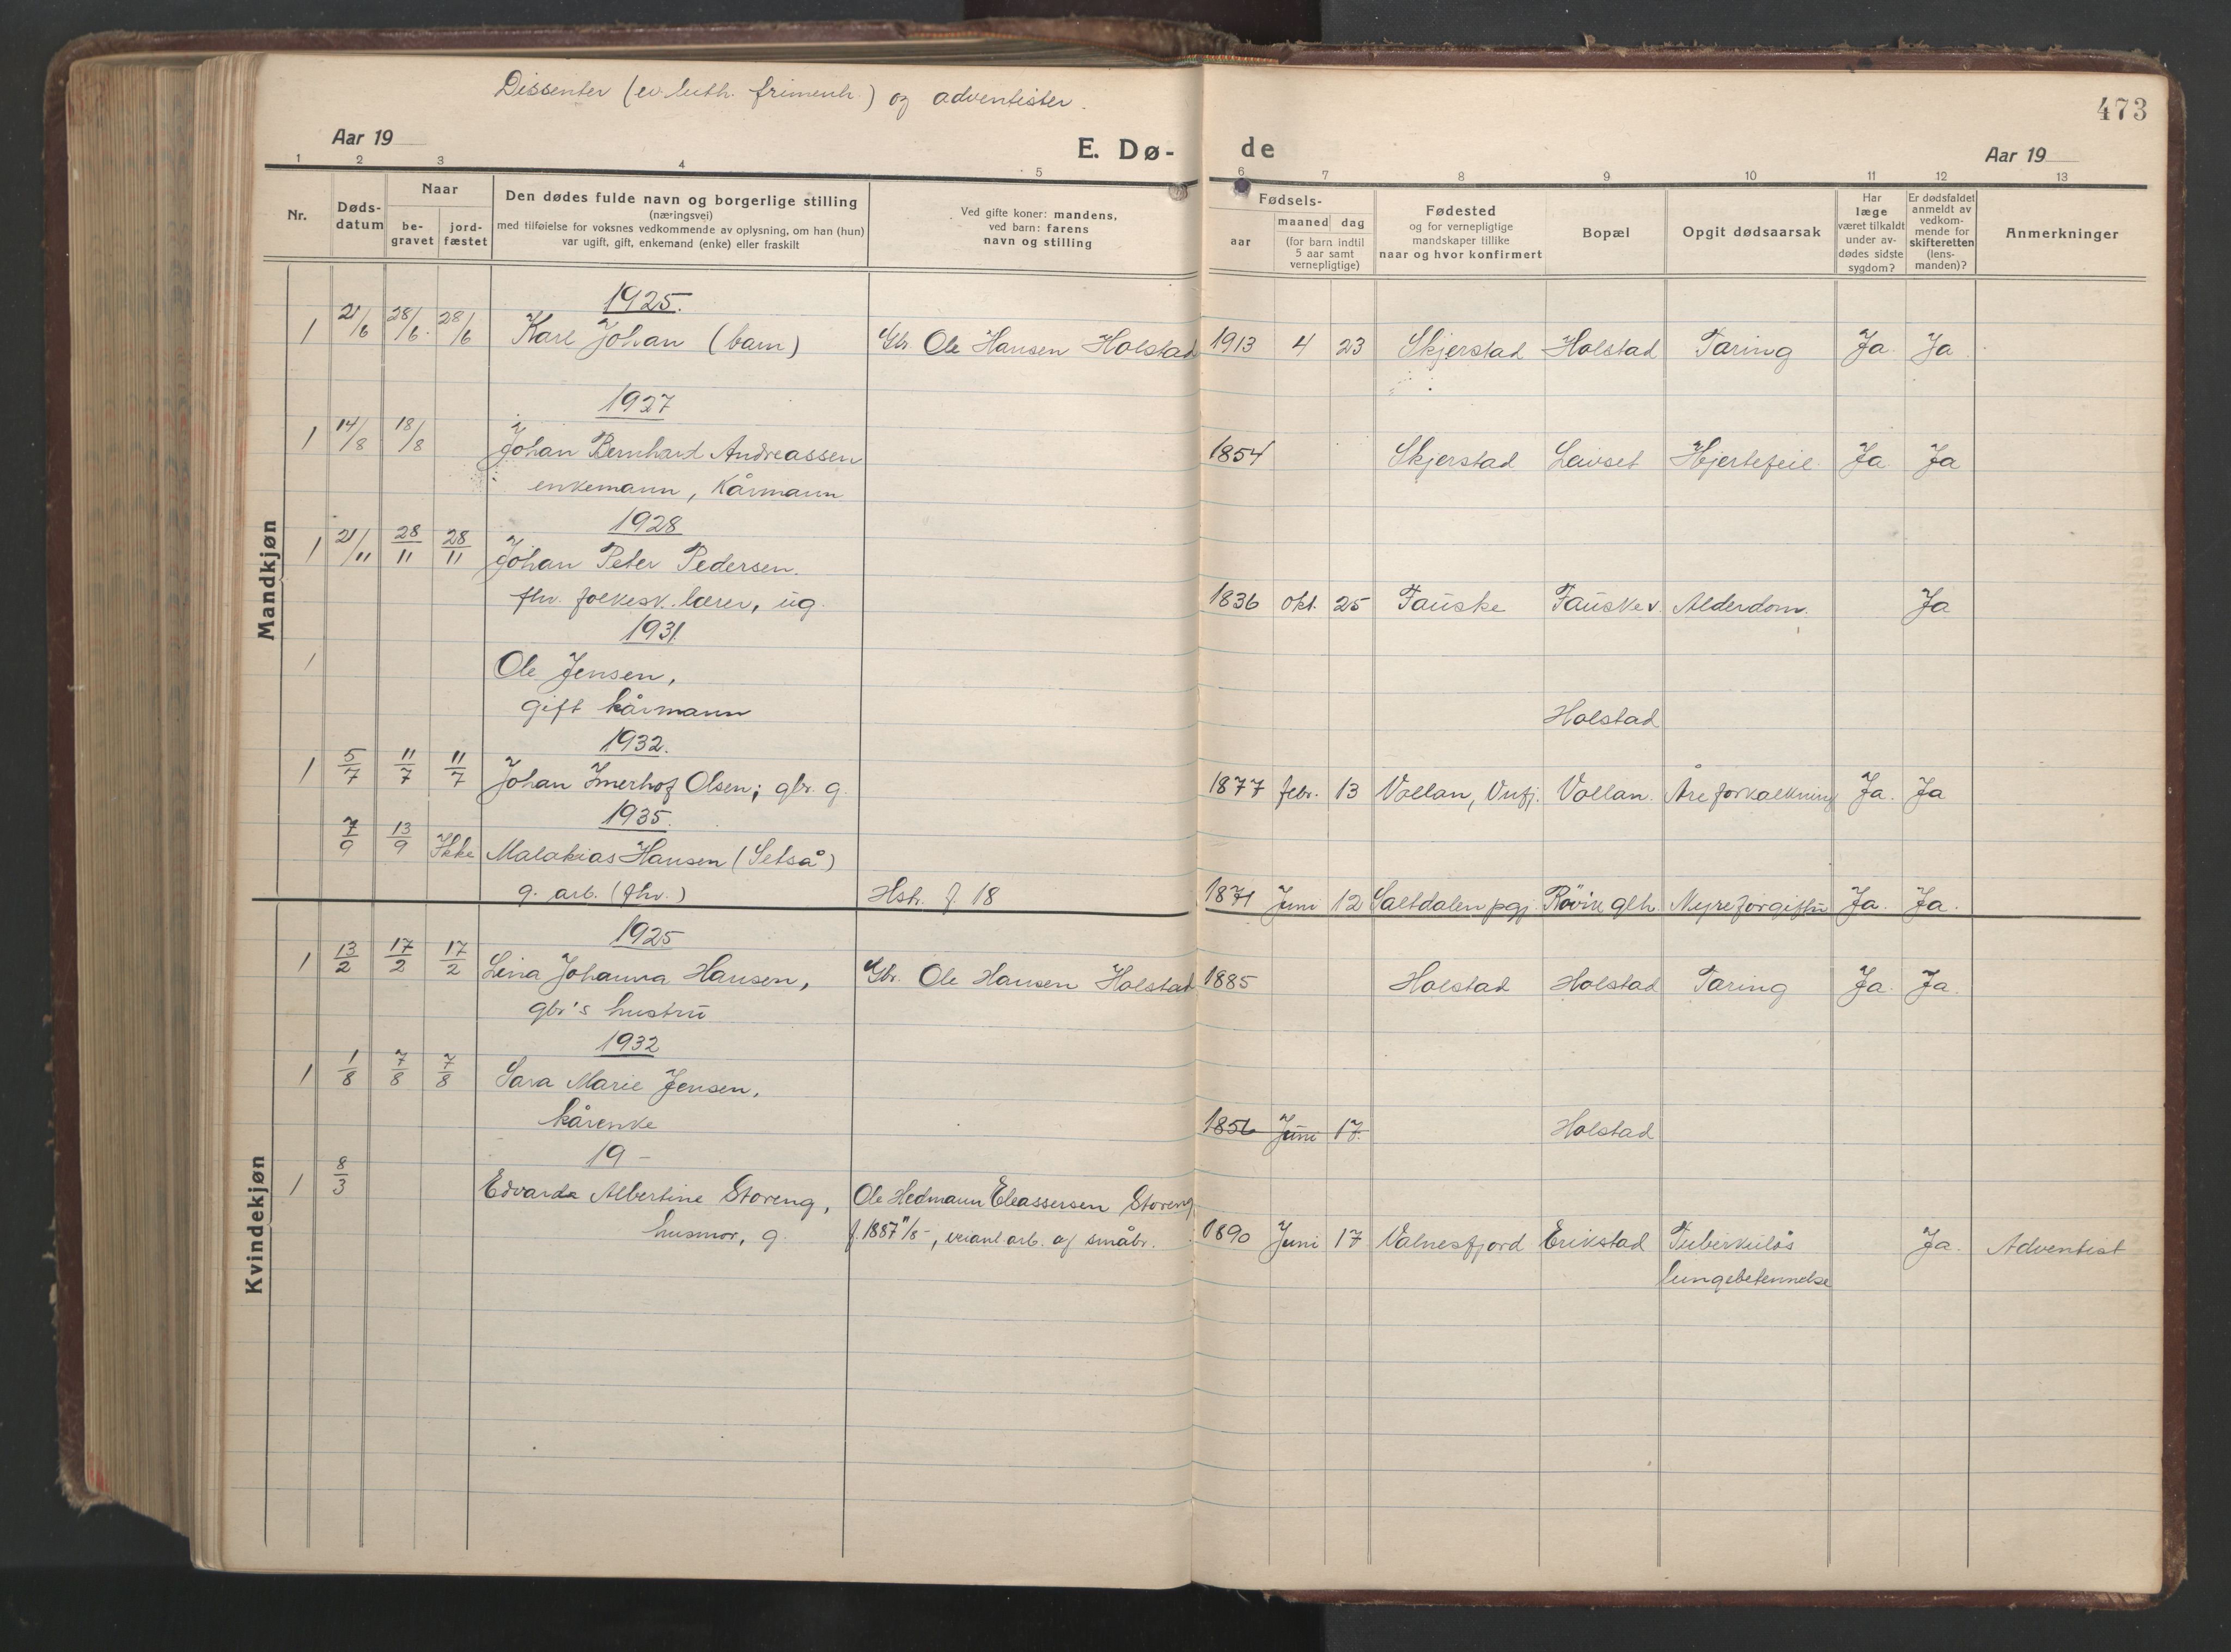 Dissenter (ev. luth. frimenh.) og adventister.
473
Aar 19
E. Dø-
de
Aar 19
1 2 3 4 5 6 7 8 9 10 11 12 13
Nr.
Døds-
datum
Naar
be-
gravet
jord-
fæstet
Den dødes fulde navn og borgerlige stilling
(næringsvei)
med tilføielse for voksnes vedkommende av oplysning, om han (hun)
var ugift, gift, enkemand (enke) eller fraskilt
Ved gifte koner: mandens,
ved barn: farens
navn og stilling
Fødsels-
aar
maaned dag
(for barn indtil
5 aar samt
vernepligtige)
Fødested
og for vernepligtige
mandskaper tillike
naar og hvor konfirmert
Bopæl
Opgit dødsaarsak
Har
læge
været tilkaldt
under av-
dødes sidste
sygdom?
Er dødsfaldet
anmeldt av
vedkom-
mende for
skifteretten
(lens-
manden)?
Anmerkninger
Mandkjøn
1925.
1 21/6 28/6 28/6 Karl Johan (barn) Gbr. Ole Hansen Holstad 1913 4 23 Skjerstad Holstad Tæring Ja Ja
1927
1 14/8 18/8 Johan Bernhard Andreassen 1854 Skjerstad Leivset Hjertefeil Ja Ja
enkemann, Kårmann
1928
1 21/11 28/11 28/11 Johan Peter Pedersen.
fhv. folkesk. lærer, ug. 1836 okt. 25 Fauske Fauske v. Alderdom. Ja
1931
1 Ole Jensen,
gift kårmann Holstad
1932.
1 5/7 11/7 11/7 Johan Imerhof Olsen; gbr. g. 1877 febr. 13 Vollan, Vnfj. Vollan. Åreforkalkning Ja. Ja
1935.
7/9 13/9 Ikke Malakias Hansen (Setså)
g. arb. (fhv.) Hstr. f. 18 1871 Juni 12 Saltdalen pgj. Røvik glh. Nyreforgiftn Ja. Ja.
Kvindekjøn
1925
1 13/2 17/2 17/2 Lina Johanna Hansen, Gbr. Ole Hansen Holstad 1885 Holstad Holstad Tæring Ja. Ja.
gbr's hustru
1932
1 1/8 7/8 7/8 Sara Marie Jensen,
kårenke 1856 Juni 17. Holstad
19-
1 8/3 Edvarda Albertine Storeng, Ole Hedmann Eleassersen Storeng
husmor, g. f. 1887 11/8-, arb. og småbr. 1890 Juni 17 Valnesfjord Erikstad Tuberkuløs Ja. Adventist
lungebetennelse